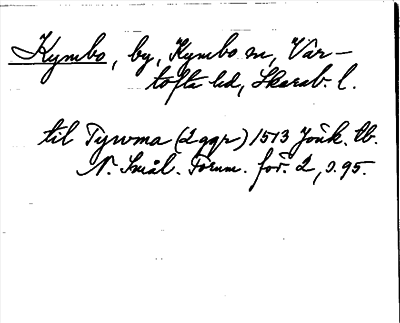 Kymbo, by, Kymbo sn, Vår-
tofta hd, Skarab. l.
til Tyrwma (2 ggr) 1513 Jönk. tb.
N. Smål. Fornm. för. 2, s. 95.